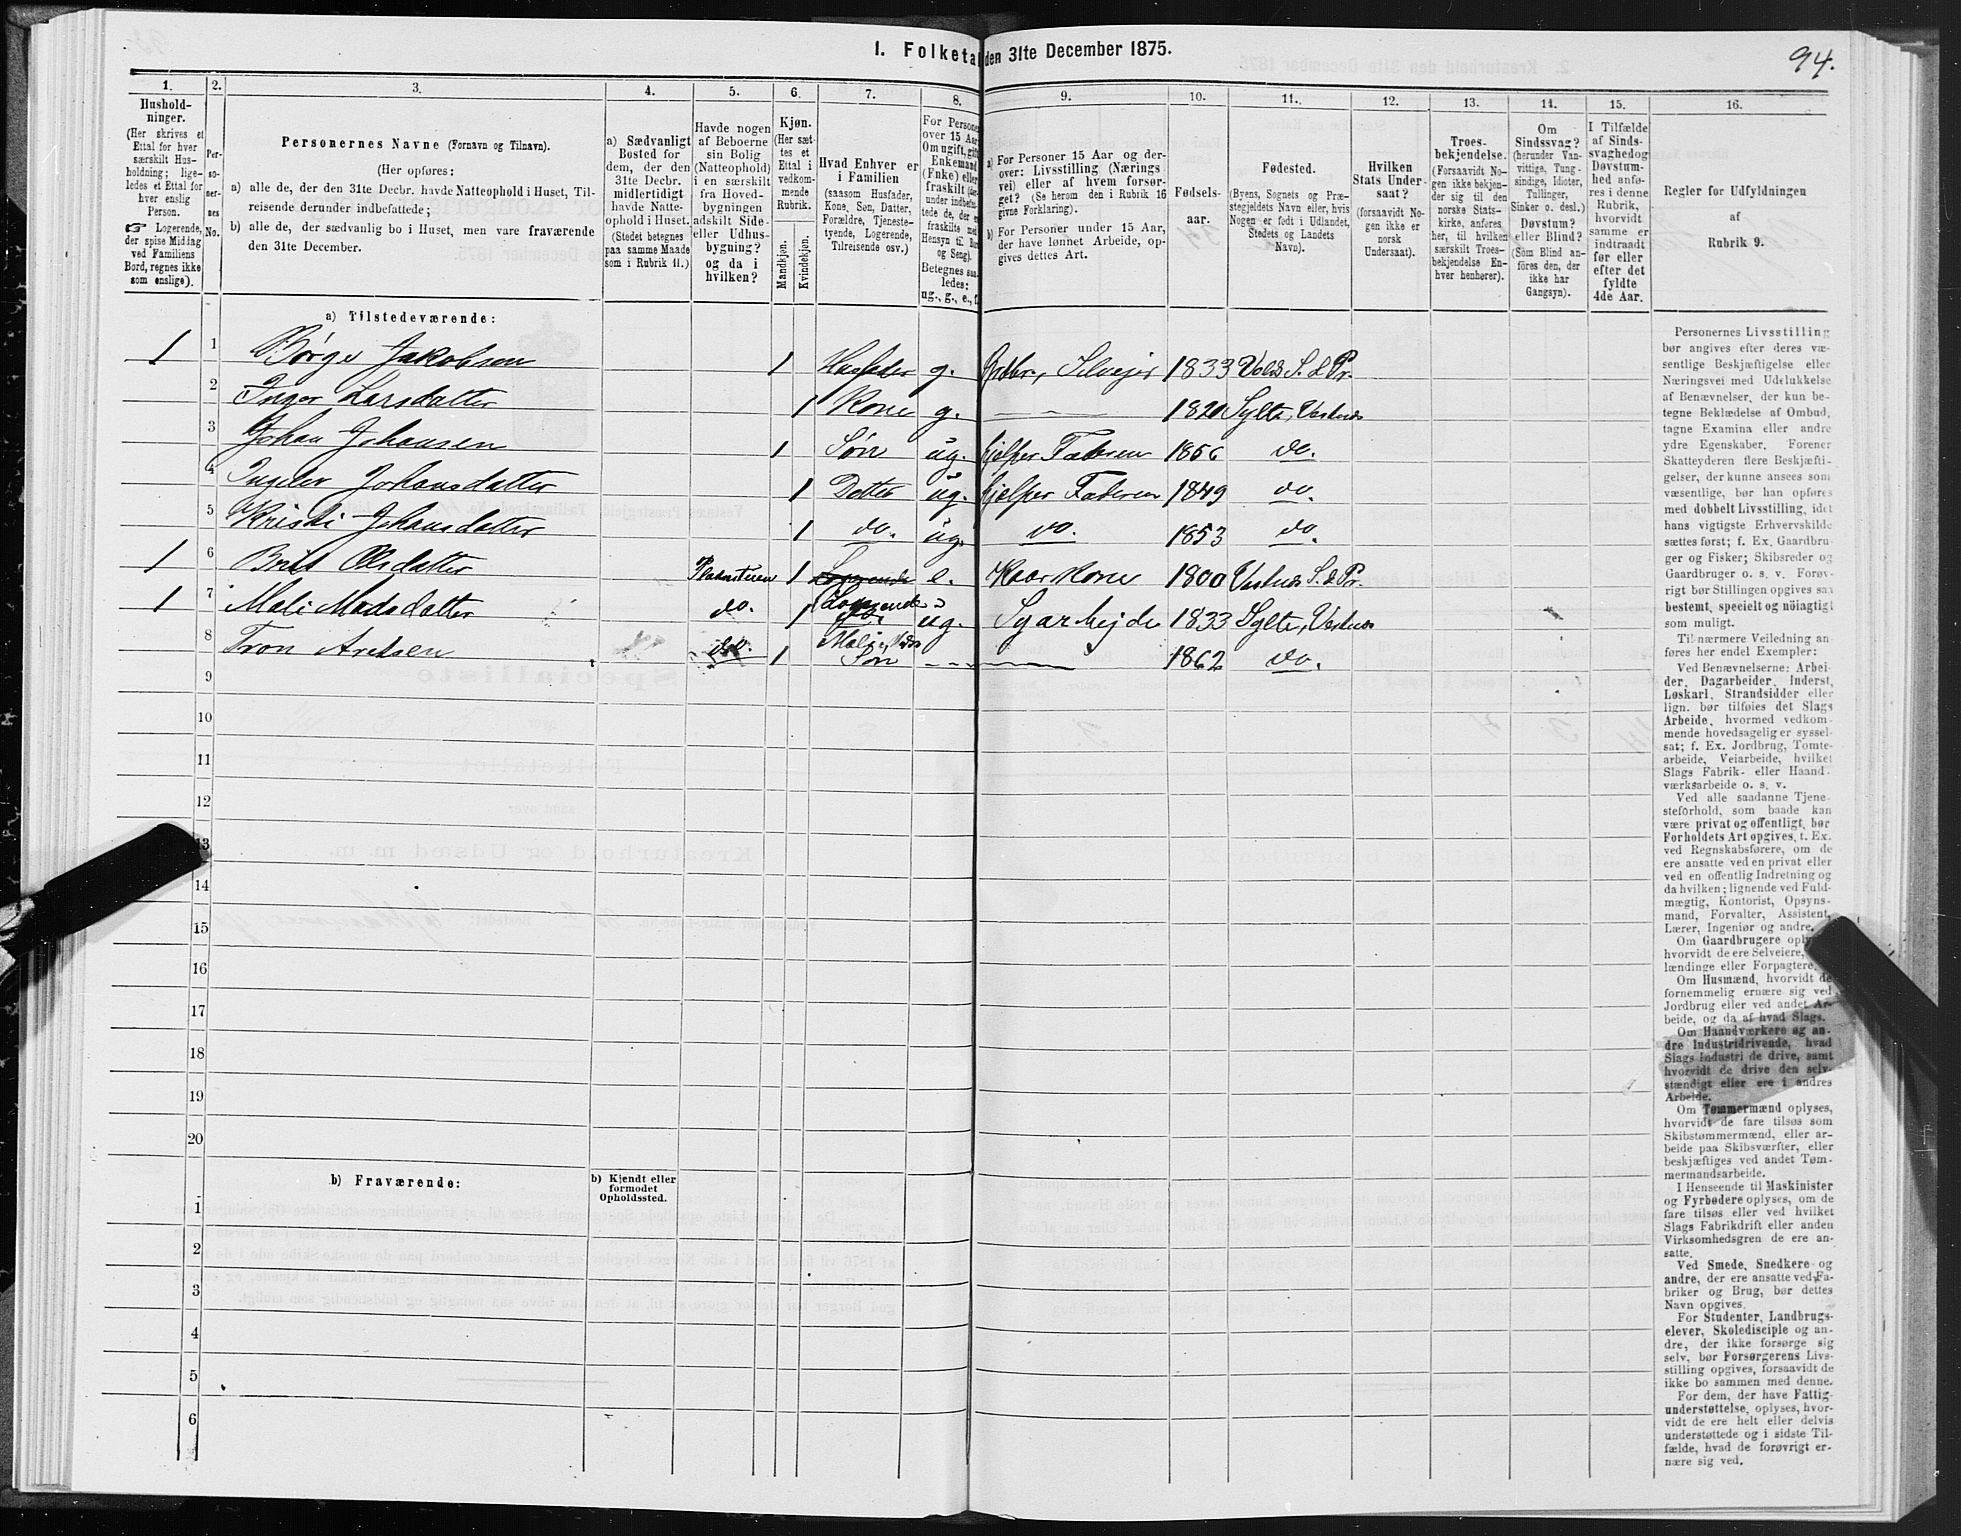 94.
I. Folketal den 31te December 1875.
1.
Hushold-
ninger.
(Her skrives et
Ettal for hver
særskilt Hus-
holdning; lige-
ledes et Ettal for
hver enslig
Person.
☞ Logerende,
der spise Middag
ved Familiens
Bord, regnes ikke
som enslige).
2.
Per-
so-
ner-
nes
No.
3.
Personernes Navne (Fornavn og Tilnavn).
(Her opføres:
a) alle de, der den 31te Decbr. havde Natteophold i Huset, Til-
reisende derunder indbefattede;
b) alle de, der sædvanlig bo i Huset, men vare fraværende
den 31te December.
4.
a) Sædvanligt
Bosted for
dem, der den
31te Decbr.
midlertidigt
havde Natte-
ophold i Huset.
(Stedet betegnes
paa samme Maade
som i Rubrik 11.)
5.
Havde nogen
af Beboerne
sin Bolig
(Natteophold)
i en særskilt
fra Hoved-
bygningen
adskilt Side-
eller Udhus-
bygning?
og da i
hvilken?
6.
Kjøn.
(Her sæt-
tes et
Ettal i
vedkom-
mende
Rubrik.
Mandkjøn.
Kvindekjøn.
7.
Hvad Enhver er
i Familien
(saasom Husfader,
Kone, Søn, Datter,
Forældre, Tjeneste-
tyende, Logerende,
Tilreisende osv.)
8.
For Personer
over 15 Aar
Om ugift, gift
Enkemand
(Enke) eller
fraskilt
Betegnes saa-
ledes:
ug., g., e., f.
9.
a) For Personer 15 Aar og der-
over: Livsstilling (Nærings-
vei) eller af hvem forsør-
get? (Se herom den i Rubrik 16
givne Forklaring).
b) For Personer under 15 Aar,
der have lønnet Arbeide, op-
gives dettes Art.
10.
Fødsels-
aar.
11.
Fødested.
(Byens, Sognets og Præ-
stegjeldets Navn eller, hvis
Nogen er født i Udlandet,
Stedets og Landets
Navn).
12.
Hvilken
Stats Under-
saat?
(forsaavidt No-
gen ikke er
norsk
Undersaat).
13.
Troes-
bekjendelse.
(Forsaavidt No-
gen ikke bekjen-
der sig til den
norske Stats-
kirke, anføres
her, til hvilken
særskilt Troes-
bekjendelse En-
hver henhører).
14.
Om
Sindssvag?
(herunder Van-
vittige, Tung-
sindige, Idioter,
Tullinger,
Sinker o. desl.)
Døvstum?
eller Blind?
(Som Blind an-
føres den, der
ikke har
Gangsyn).
15.
I Tilfælde
af Sinds-
svaghed og
Døvstum-
hed anfø-
res i denne
Rubrik,
hvorvidt
samme er
indtraadt
før eller
efter det
fyldte
4de Aar.
16.
Regler for Udfyldningen
af
Rubrik 9.
a) Tilstedeværende:
1 1 Børge Jakobsen 1 Husfader g. Grdbr., Selveier 1833 Volds S. & Pr.
2 Inger Larsdatter 1 Kone g. 1820 Sylte, Vestnæs
3 Johan Johansen 1 Søn ug. hjelper Faderen 1856 do.
4 Ingeler Johansdatter 1 Datter ug. hjelper Faderen 1849 do.
5 Kristi Johansdatter 1 do. ug. do. 1853 do.
1 6 Brit Olsdatter 1 Logerende e. Kaarkone 1800 Vestnæs S. & Pr.
1 7 Mali Madsdatter do. 1 Logerende ug. Syarbejde 1833 Sylte, Vestnæs
8 Tron Aretsen do. 1 Søn 1862 do.
9
10
11
12
13
14
15
16
17
18
19
20
b) Fraværende:
b) Kjendt eller
formodet
Opholdssted.
1
2
3
4
5
6
Personernes Livsstilling
bør angives efter deres væ-
sentlige Beskjæftigelse eller
Næringsvei med Udelukkelse
af Benævnelser, der kun be-
tegne Beklædelse af Ombud,
tagne Examina eller andre
ydre Egenskaber. Forener
Skatteyderen flere Beskjæfti-
gelser, der kunne ansees som
væsentlige, bør han opføres
med dobbelt Livsstilling, idet
hans vigtigste Erhvervskilde
sættes først; f. Ex. Gaardbru-
ger og Fisker; Skibsreder og
Gaardbruger o. s. v. Forøv-
rigt bør Stillingen opgives saa
bestemt, specielt og nöiagtigt
som muligt.
Til nærmere Veiledning an-
føres her endel Exempler:
Ved Benævnelserne: Arbei-
der, Dagarbeider, Inderst,
Løskarl, Strandsidder eller
lign. bør tilføies det Slags
Arbeide, hvormed vedkom-
mende hovedsagelig er syssel-
sat; f. Ex. Jordbrug, Tomte-
arbeide, Veiarbeide, hvilket
Slags Fabrik- eller Haand-
værksarbeide o. s. v.
Ved alle saadanne Tjene-
steforhold, som baade kan
være privat og offentligt, bør
Forholdets Art opgives, t. Ex.
ved Regnskabsførere, om de
ere ansatte ved en privat eller
ved en offentlig Indretning og
da hvilken; lignende ved Fuld-
mægtig, Kontorist, Opsyns-
mand, Forvalter, Assistent,
Lærer, Ingeniør og andre.
Om Gaardbrugere oply
hvorvidt de ere Selveiere,
lændinge eller Forpagtere.
Om Husmænd, hvorvidt de
fornemmelig ernære sig ved
Jordbrug eller ved andet Ar-
beide, og da af hvad Slags.
Om Haandværkere og an-
dre Industridrivende, hvad
Slags Industri de drive, samt
hvorvidt de drive den selv-
stændigt eller ere i andres
Arbeide.
Om Tømmermænd oplyses,
hvorvidt de fare tilsøs som
Skibstømmermænd, eller ar-
beide paa Skibsværfter, eller
beskjæftiges ved andet Tøm-
mermandsarbeide.
I Henseende til Maskinister
og Fyrbødere oplyses, om de
fare tilsøs eller ved hvilket
Slags Fabrikdrift eller anden
Virksomhedsgren de ere an-
satte.
Ved Smede, Snedkere og
andre, der ere ansatte ved Fa-
briker og Brug, bør dettes
Navn opgives.
For Studenter, Landbrugs-
elever, Skoledisciple og an-
dre, der ikke forsørge sig
selv, bør Forsørgerens Livs-
stilling opgives, forsaavidt de
ikke bo sammen med denne.
For dem, der have Fattig-
understøttelse, oplyses, hvor-
vidt de ere helt eller delvis
understøttede og i sidste Til-
fælde, hvad de forøvrigt er-
nære sig ved.